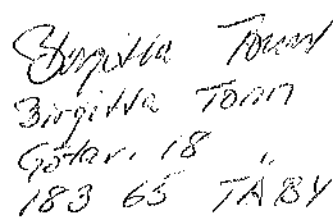 Birgitta Tonn
Birgitta Tonn
Götav. 18
183 65 TÄBY